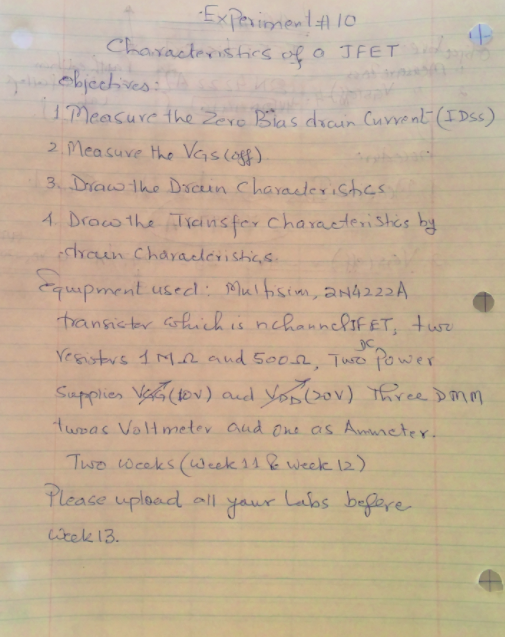 Experiment # 10
Characteristics of a JFET
objectives:
1 Measure the Zero Bias drain Current (IDSS)
2. Measure the VGS (off)
3. Draw the Drain Characteristics
4. Draw the Transfer Characteristics by
drain Characteristics.
Equipment used: Multisim, 2N4222A
transistor which is nchannel JFET, two
resistors 1 MΩ and 500Ω, Two DC Power
Supplies VGG (10V) and VDD (20V) Three DMM
two as Voltmeter and one as Ammeter.
Two weeks (week 11 & week 12)
Please upload all your Labs before
week 13.